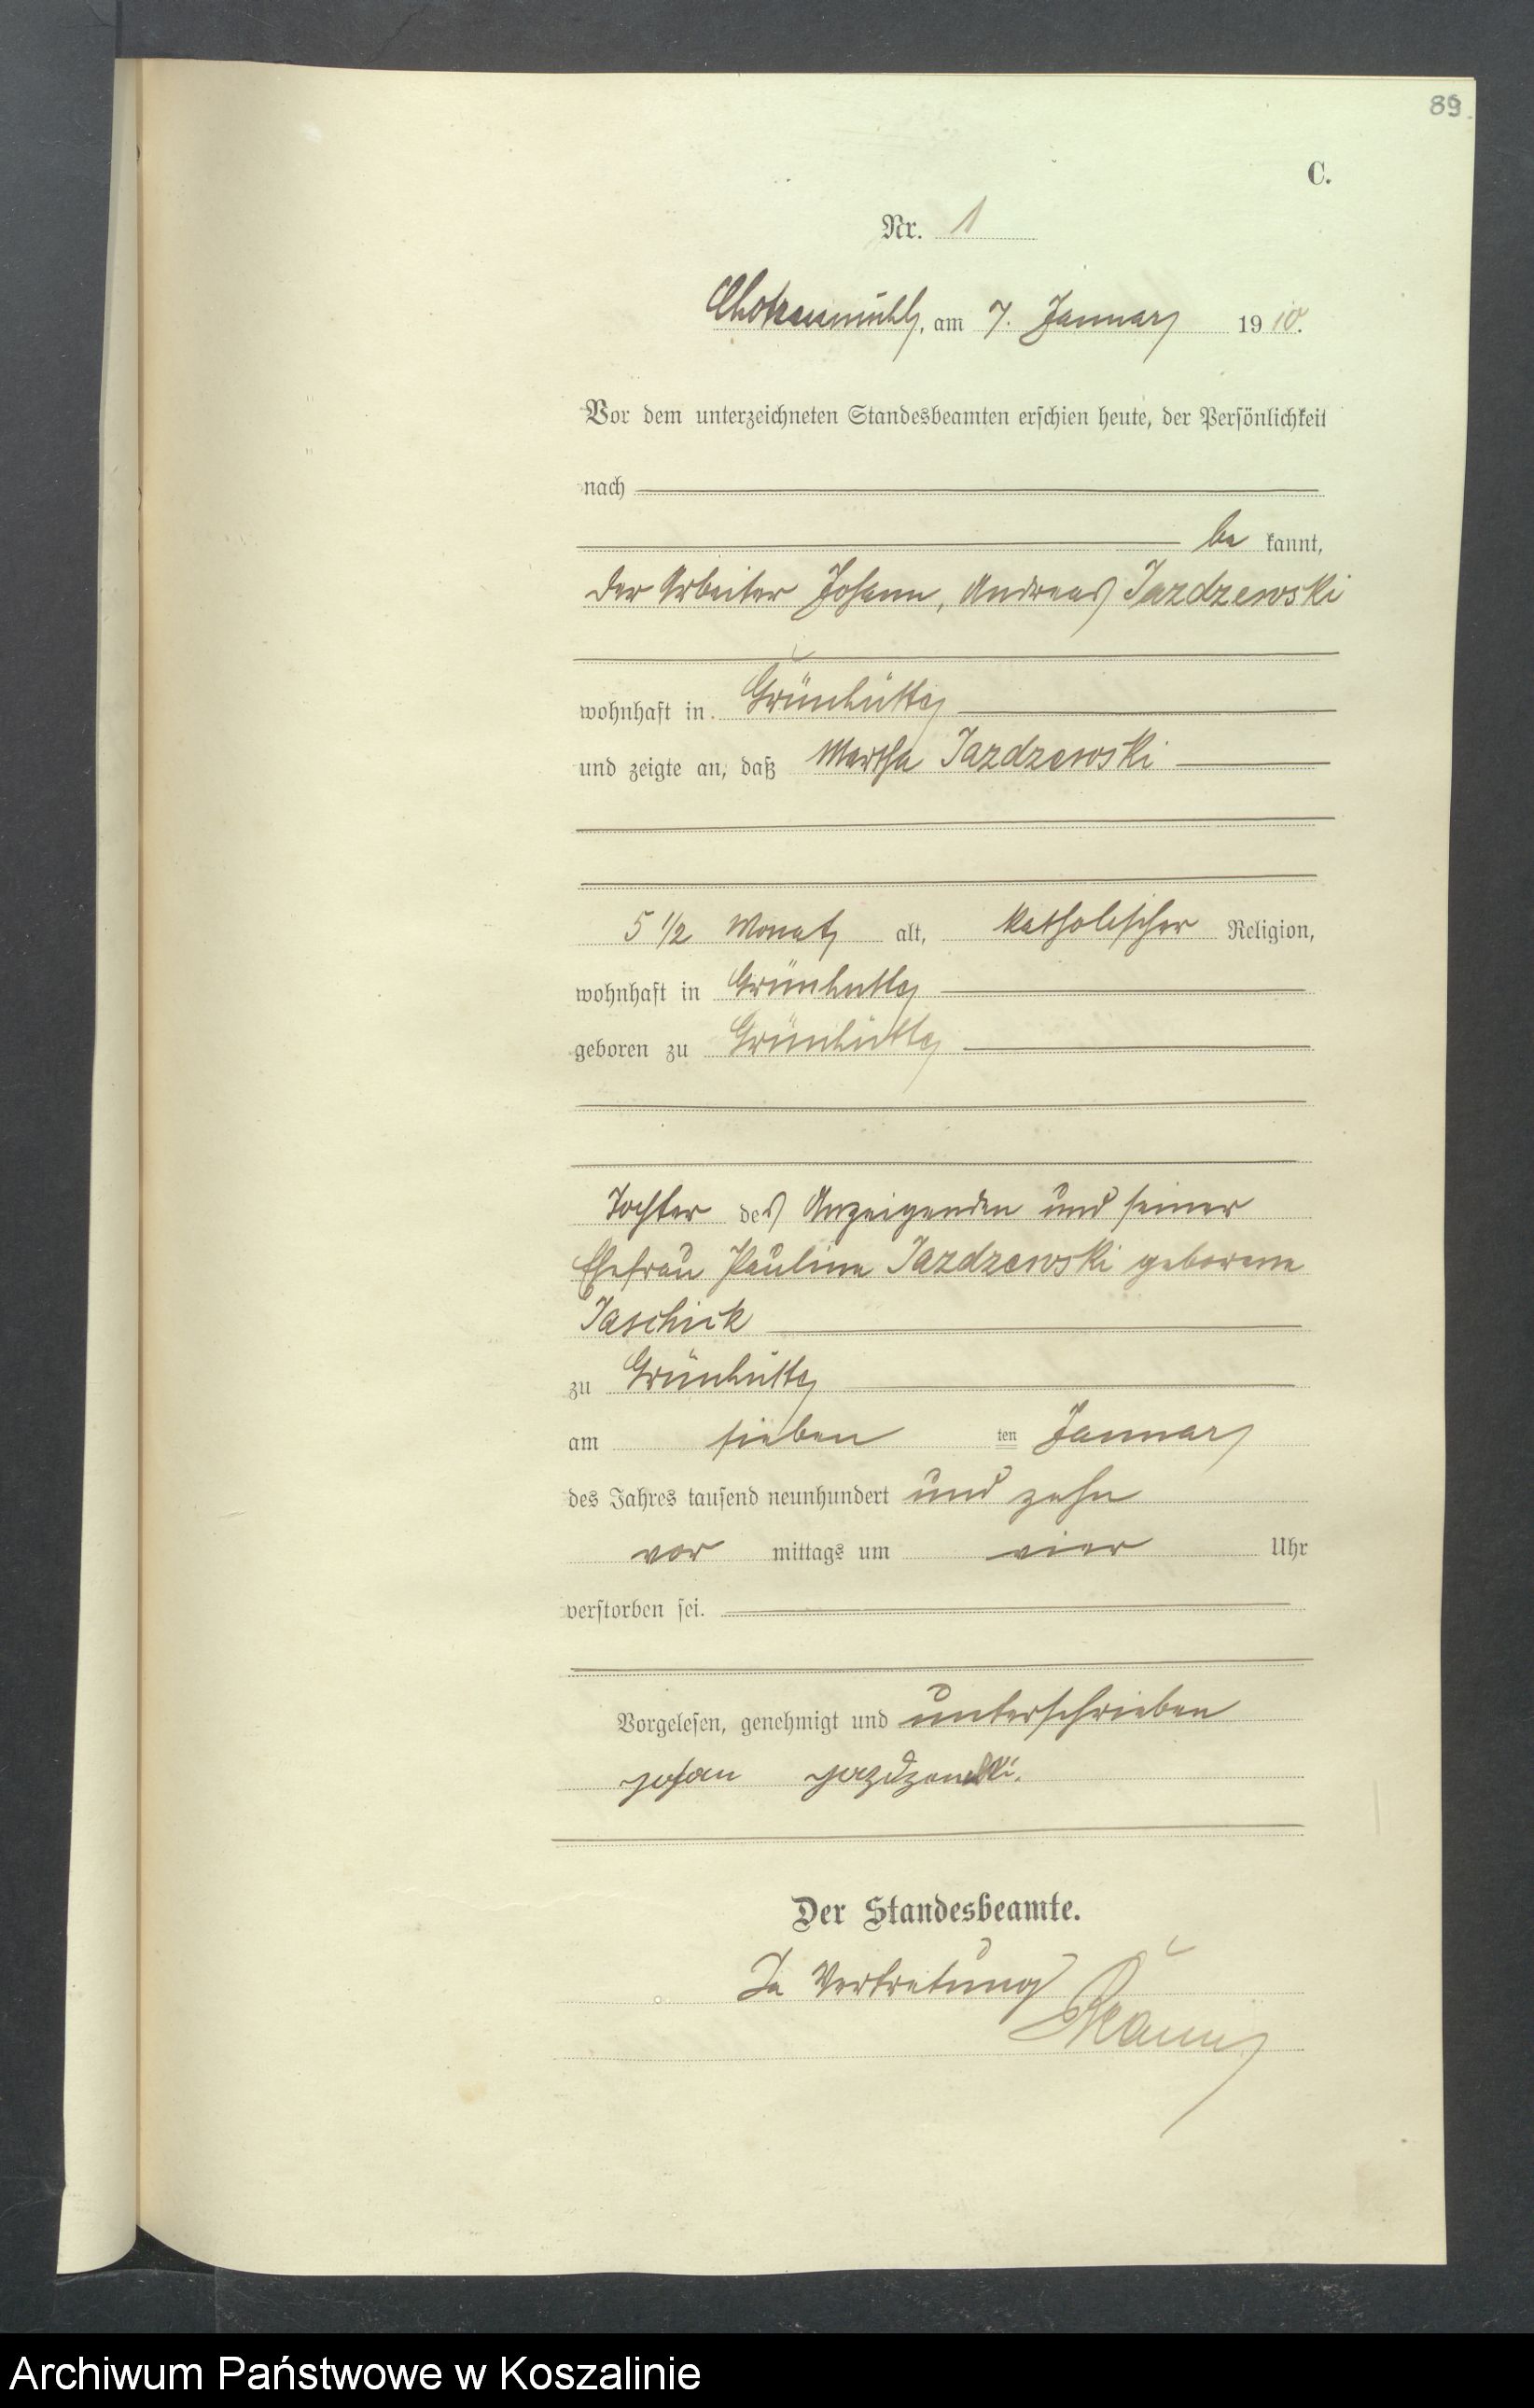 89.
C.
Nr. 1
Chotzenmühle, am 7. Januar 1910.
Vor dem unterzeichneten Standesbeamten erschien heute, der Persönlichkeit
nach
be kannt,
der Arbeiter Johann, Andreas Jazdzewski
wohnhaft in Grünhütte
und zeigte an, daß Martha Jazdzewski
5 1/2 Monate alt, katholischer Religion,
wohnhaft in Grünhutte
geboren zu Grünhütte
Tochter des Anzeigenden und seiner
Ehefrau Pauline Jazdzewski geborene
Jaschick
zu Grünhütte
am sieben ten Januar
des Jahres tausend neunhundert und zehn
vor mittags um vier Uhr
verstorben sei.
Vorgelesen, genehmigt und unterschrieben
Johan Jazdzewski.
Der Standesbeamte.
In Vertretung
Archiwum Państwowe w Koszalinie